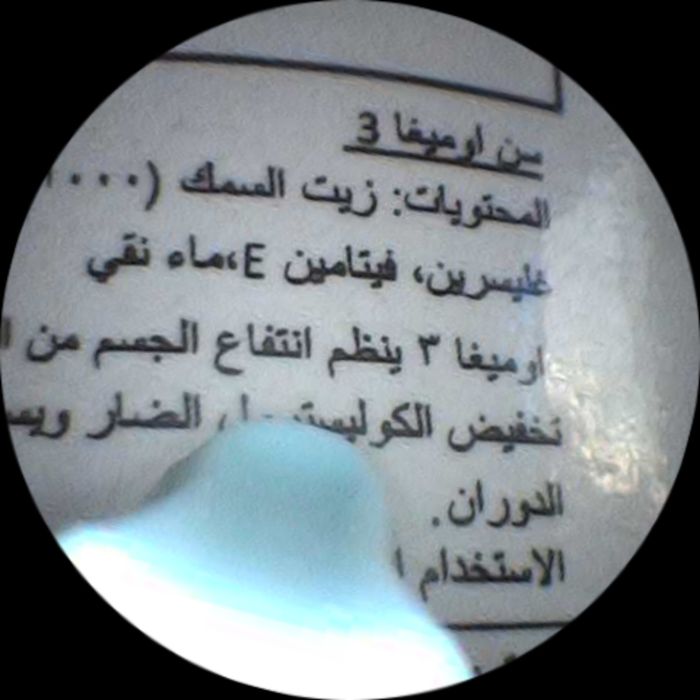 سن اوميغا 3
المحتويات: زيت السمك (١٠٠٠
غليسرين، فيتامين E،ماء نقي
اوميغا ٣ ينظم انتفاع الجسم من
تخفيض الكوليسترول الضار
الدوران.
الاستخدام